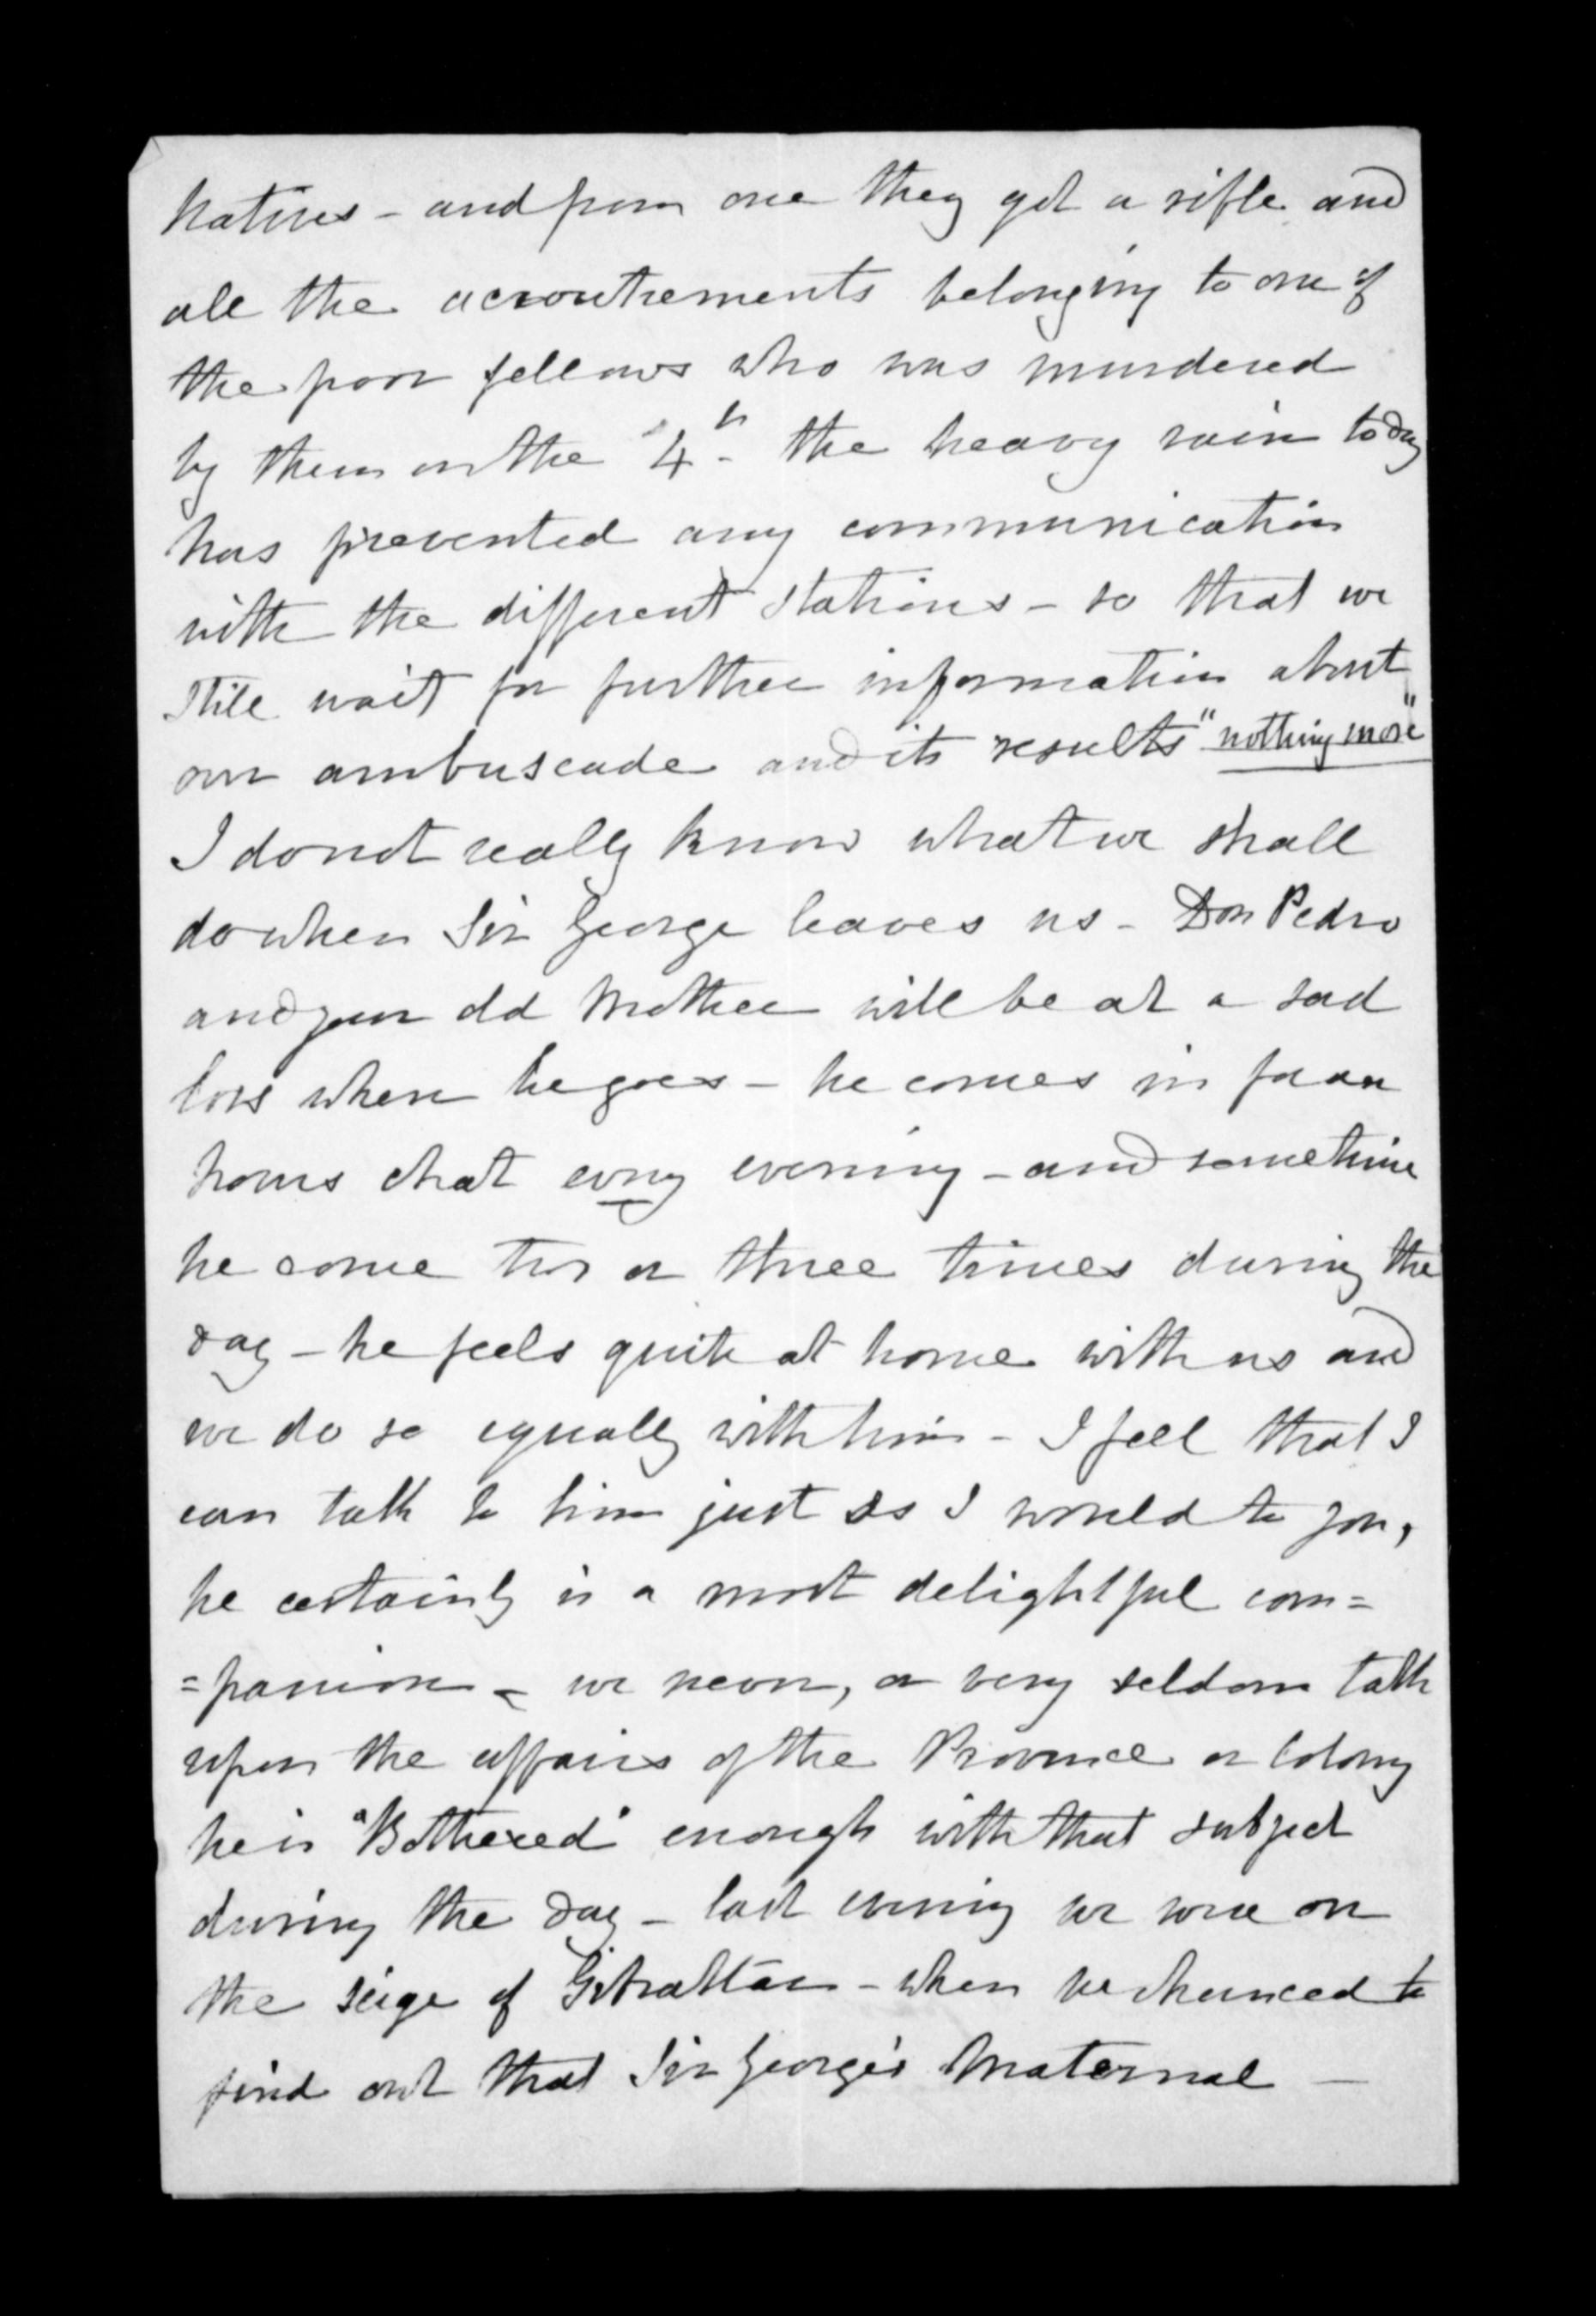 Natives - and from one they got a rifle and
all the accoutrements belonging to one of
the poor fellows who was murdered
by them on the 4th - the heavy rain today
has prevented any communication
with the different stations - so that we
still wait for further information about
our ambuscade and its results "nothing more"
I do not really know what we shall
do when Sir George leaves us - Don Pedro
and your old Mother will be at a sad
loss when he goes - he comes in for an
hours chat every evening - and sometime
he come two or three times during the
day - he feels quite at home with us and
we do so equally with him - I feel that I
can talk to him just as I would to you,
he certainly is a most delightful com=
=panion - we never, or very seldom talk
upon the affairs of the Province or Colony
he is "Bothered" enough with that subject
during the day - last evening we were on
the seige of Gibraltar - when we chanced to
find out that Sir George's Maternal -